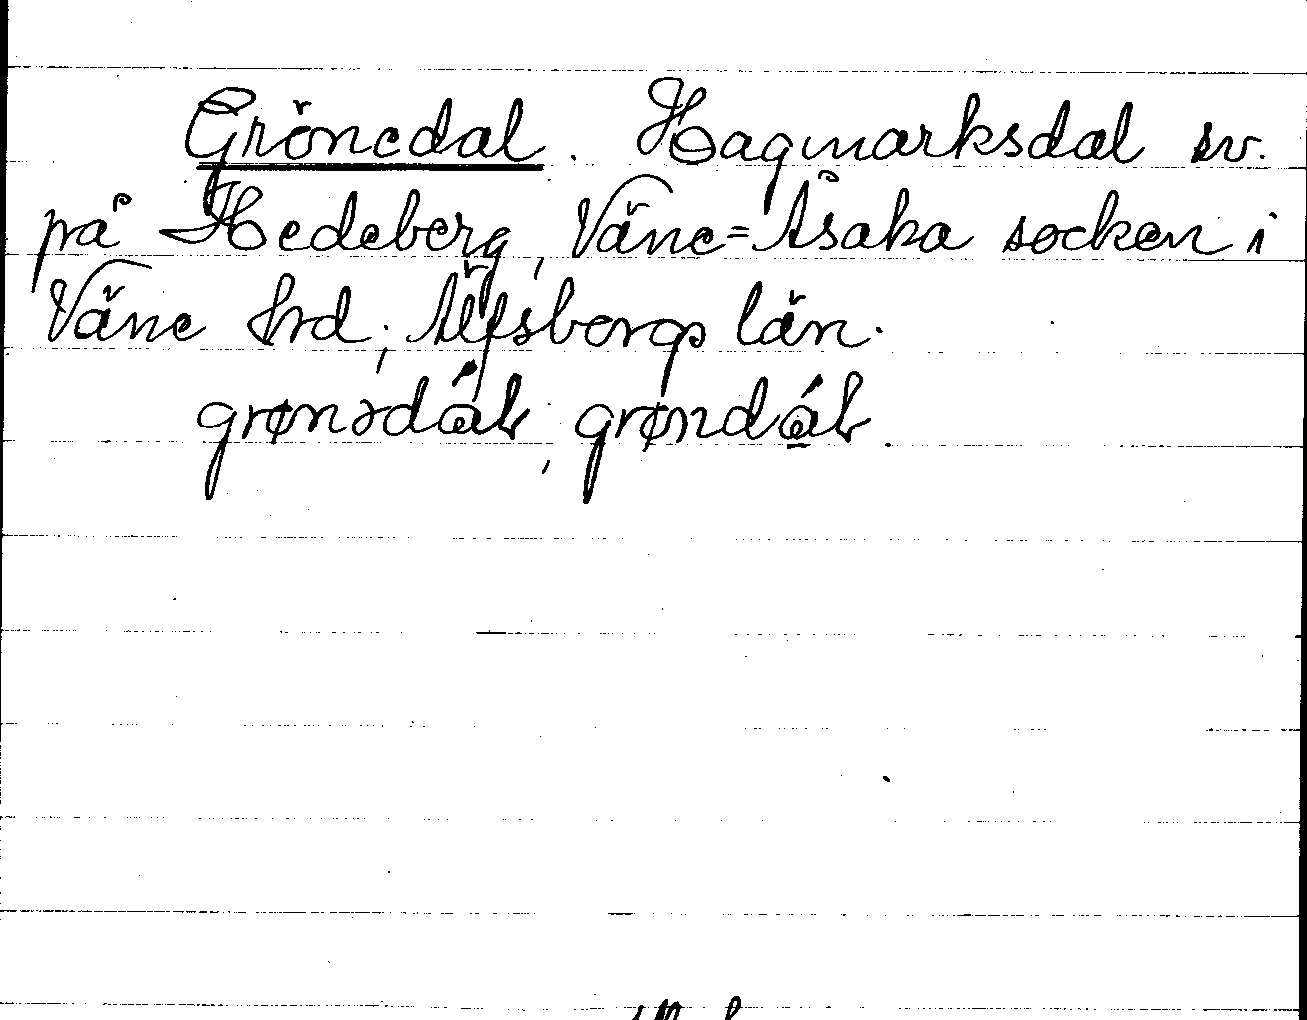 Grönedal. Hagmarksdal sv.
på Hedeberg, Väne=Åsaka socken i
Väne hrd, Älfsborgs län.
grønədáɫ, grøndáɫ